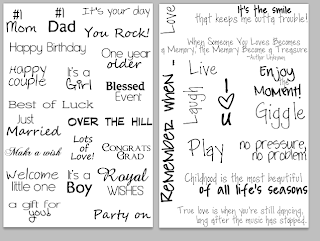 #1 Mom
#1 Dad
It's your day
You Rock!
Happy Birthday
One year
older
Happy
couple
It's a
Girl
Blessed
Event
Best of Luck
Just
Married
OVER THE HILL
Make a wish
Lots
of
Love!
CONGRATS
GRAD
Welcome
little one
It's a
Boy
Royal
WISHES
a gift for
you!
Party on
REMEMBER WHEN -
Love
It's the smile
that keeps me outta trouble!
When Someone You Loves Becomes
a Memory, the Memory Becomes a Treasure
-Author Unknown
Live
Laugh
I
U
Enjoy
the
MOMENT!
Giggle
Play
no pressure,
no problem
Childhood is the most beautiful
of all life's seasons
True love is when you're still dancing,
long after the music has stopped.